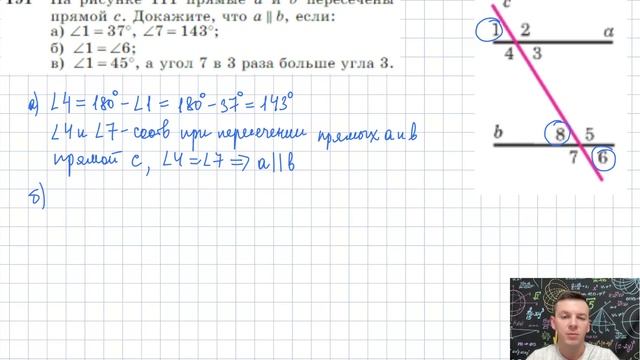 На рисунке 111 прямые a и b пересечены
прямой c. Докажите, что a ∥ b, если:
а) ∠1 = 37°, ∠7 = 143°;
б) ∠1 = ∠6;
в) ∠1 = 45°, а угол 7 в 3 раза больше угла 3.
а) ∠4 = 180° - ∠1 = 180° - 37° = 143°
∠4 и ∠7 - соотв при пересечении прямых a и b
прямой c, ∠4 = ∠7 ⇒ a || b
б)
c
1 2 a
4 3
b 8 5
7 6